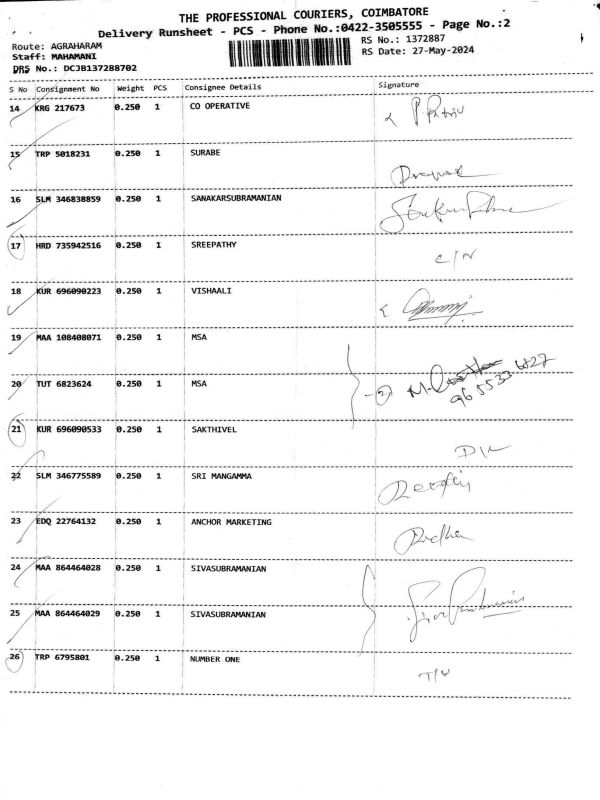 THE PROFESSIONAL COURIERS, COIMBATORE
Delivery Runsheet - PCS - Phone No.:0422-3505555 - Page No.:2
Route: AGRAHARAM
RS No.: 1372887
Staff: MAHAMANI
RS Date: 27-May-2024
DRS No.: DCJB137288702
S No Consignment No Weight PCS Consignee Details Signature
14 KRG 217673 0.250 1 CO OPERATIVE
15 TRP 5018231 0.250 1 SURABE
16 SLM 346838859 0.250 1 SANAKARSUBRAMANIAN
17 HRD 735942516 0.250 1 SREEPATHY C/N
18 KUR 696090223 0.250 1 VISHAALI
19 MAA 108408071 0.250 1 MSA
20 TUT 6823624 0.250 1 MSA
21 KUR 696090533 0.250 1 SAKTHIVEL
22 SLM 346775589 0.250 1 SRI MANGAMMA
23 EDQ 22764132 0.250 1 ANCHOR MARKETING
24 MAA 864464028 0.250 1 SIVASUBRAMANIAN
25 MAA 864464029 0.250 1 SIVASUBRAMANIAN
26 TRP 6795801 0.250 1 NUMBER ONE